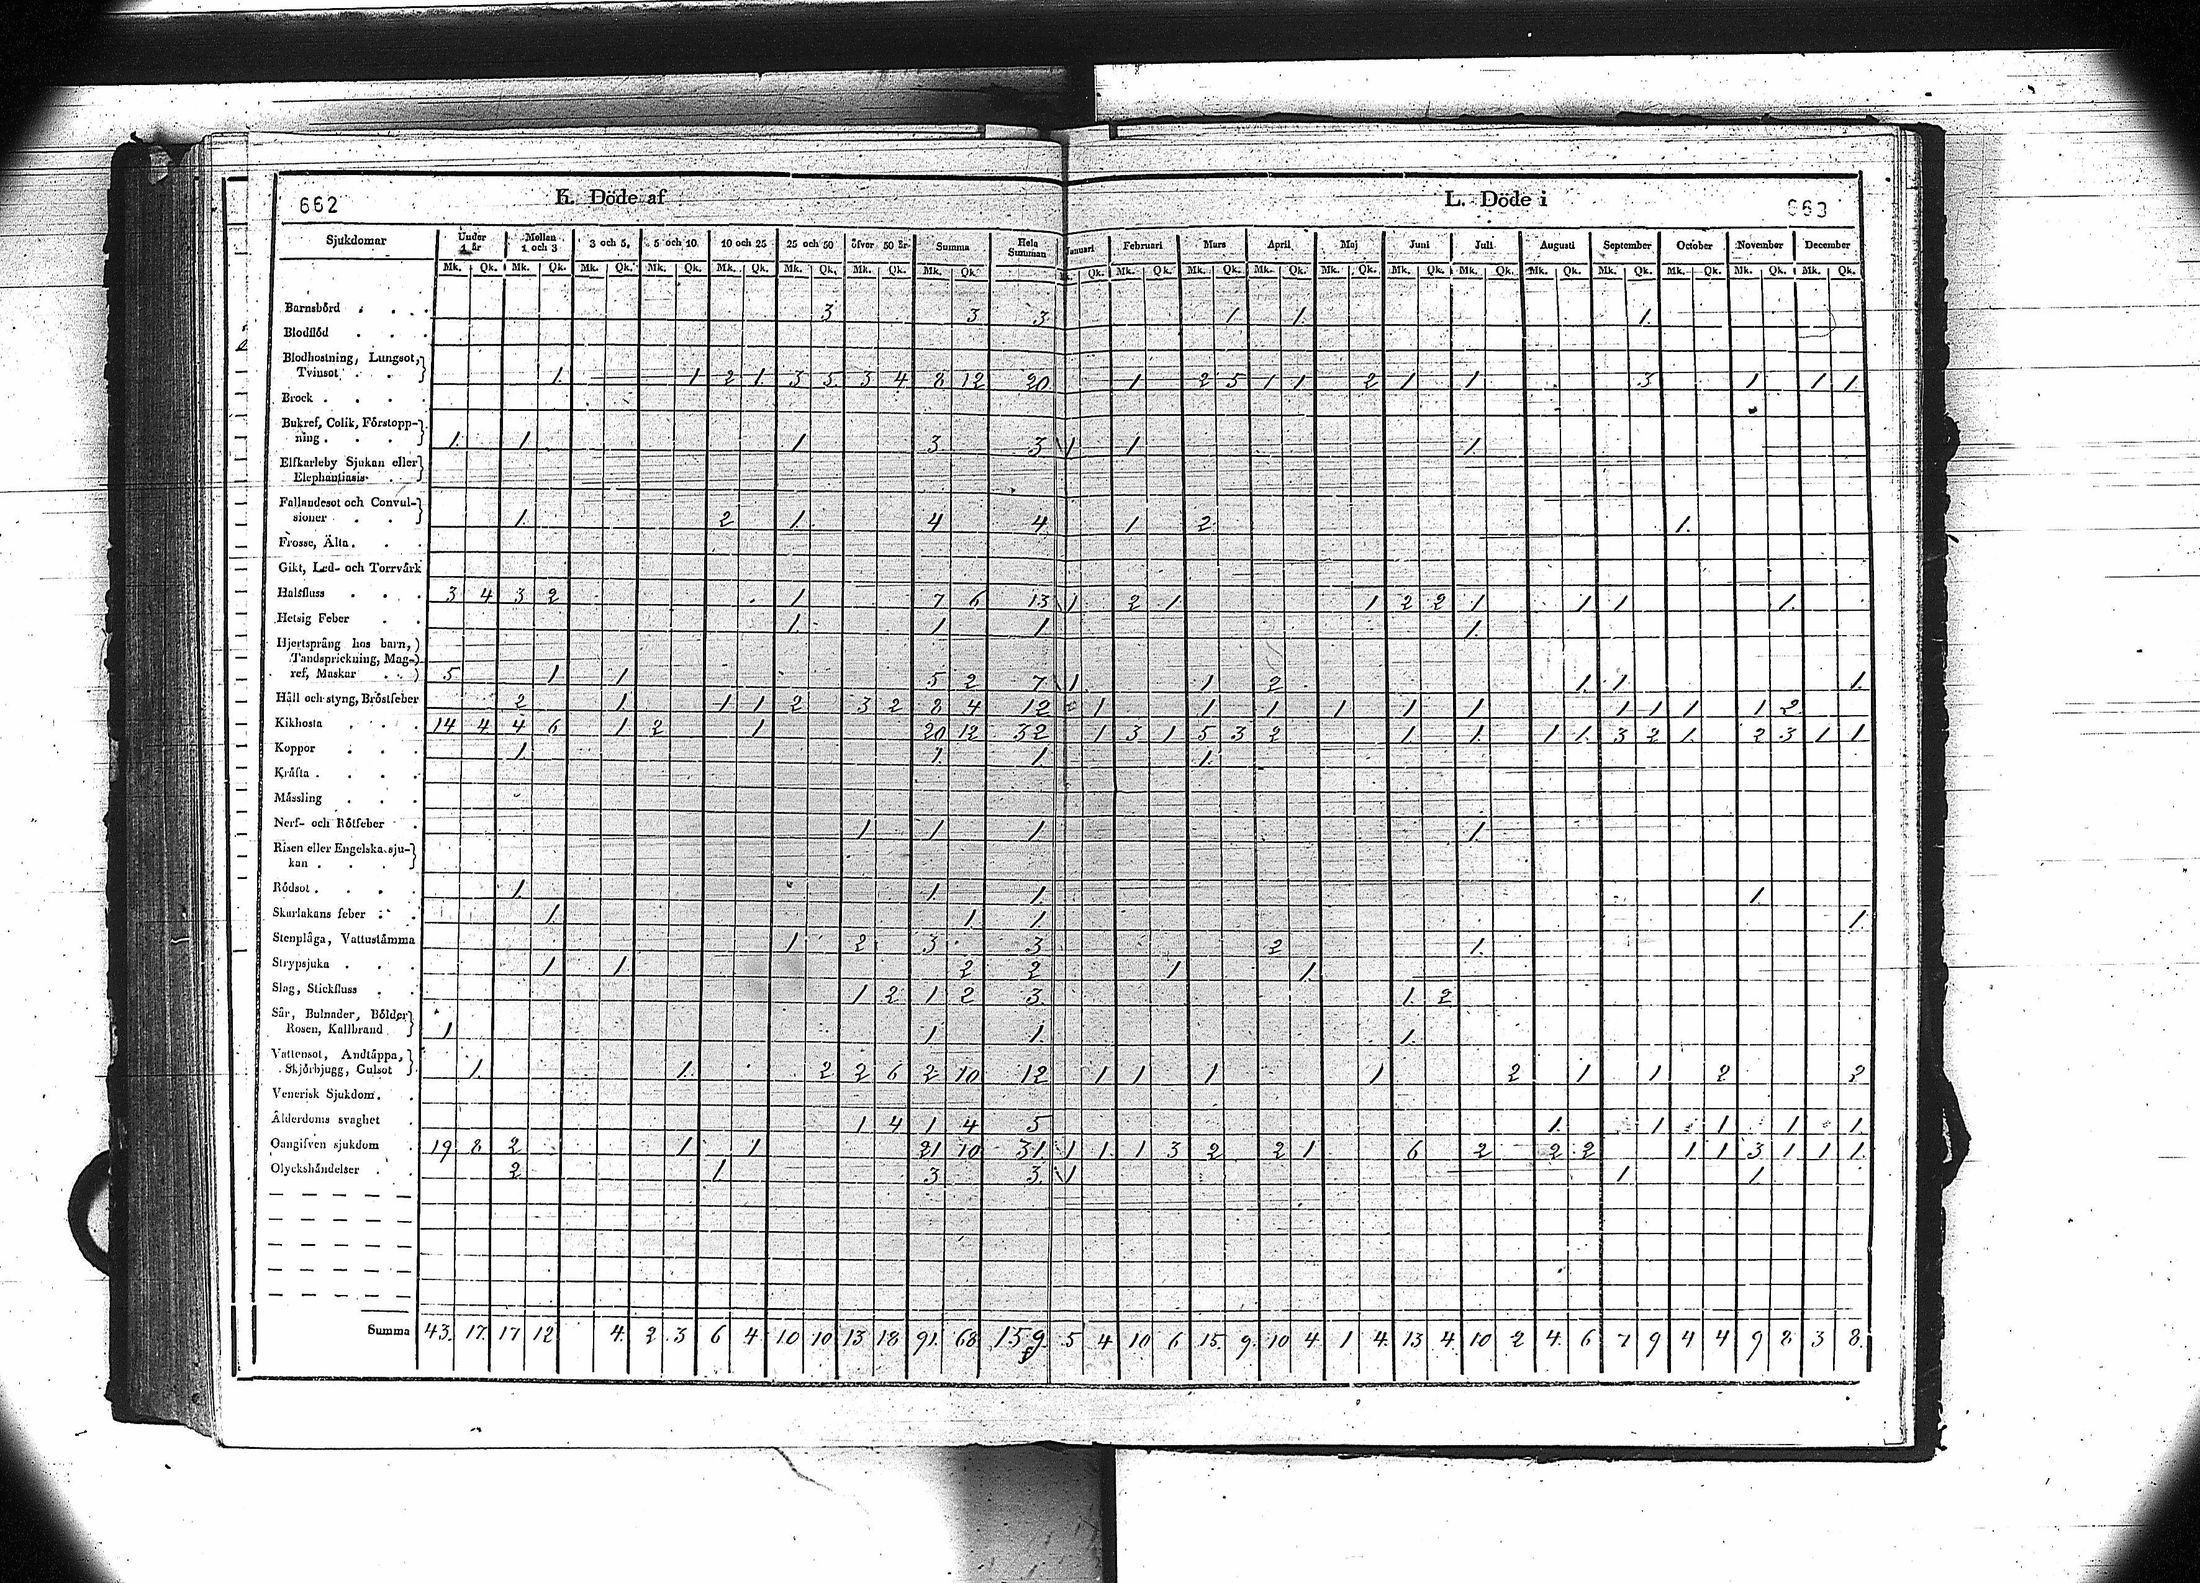 662 K. Döde af
L. Döde i 663
Sjukdomar Under 1 år Mellan 1 och 3 3 och 5. 5 och 10 10 och 25 25 och 50 öfver 50 år Summa Hela Summan
Januari Februari Mars April Maj Juni Juli Augusti September October November December
Mk. Qk. Mk. Qk. Mk. Qk. Mk. Qk. Mk. Qk. Mk. Qk. Mk. Qk. Mk. Qk.
Qk. Mk. Qk. Mk. Qk. Mk. Qk. Mk. Qk. Mk. Qk. Mk. Qk. Mk. Qk. Mk. Qk. Mk. Qk. Mk. Qk. Mk. Qk.
Barnsbörd 3 3 3 1 1. 1.
Blodflöd
Blodhostning, Lungsot,
Tvinsot 1. 1 2 1. 3 5. 3 4 8 12 20. 1 2 5 1 1 2 1 1 3 1 1 1
Brock
Bukref, Colik, Förstopp-
ning 1. 1 1 3 3 1 1. 1.
Elfkarleby Sjukan eller
Elephantiasis
Fallandesot och Convul-
sioner 1. 2 1. 4 4 1 2 1.
Frosse, Älta.
Gikt, Led- och Torrvärk
Halsfluss 3 4 3 2 1 7 6 13 1 2 1. 1 2 2 1 1 1 1.
Hetsig Feber 1. 1 1. 1.
Hjertsprång hos barn,
Tandsprickning, Mag-
ref, Maskar 5 1 1 5 2 7 1. 1 2 1. 1 1.
Håll och styng, Bröstfeber 2 1 1 1 2 3 2 8 4 12 2 1 1 1 1 1 1 1 1 1 1 2
Kikhosta 14 4 4 6 1 2 1 20 12 32 1 3 1 5 3 2 1 1. 1 1. 3 2 1. 2 3 1 1
Koppor 1. 1. 1 1.
Kräfta
Mässling
Nerf- och Rötfeber 1 1 1. 1.
Risen eller Engelska sju-
kan
Rödsot 1. 1 1. 1.
Skarlakans feber 1. 1. 1 1.
Stenplåga, Vattustämma 1 2 3 3 2 1.
Strypsjuka 1 1 2 2 1 1.
Slag, Stickfluss 1 2 1 2 3 1. 2
Sår, Bulnader, Bölder
Rosen, Kallbrand 1 1 1. 1.
Vattensot, Andtäppa,
Skjörbjugg, Gulsot 1. 1. 2 2 6 2 10 12 1 1 1 1 2 1 1 2 2
Venerisk Sjukdom.
Ålderdoms svaghet 1 4 1 4 5 1. 1 1 1 1
Oangifven sjukdom 19 8 2 1 1 21 10 31. 1 1. 1 3 2 2 1 6 2 2 2 1 1 3 1 1 1.
Olyckshändelser 2 1 3 3. 1 1 1
Summa 43. 17. 17 12 4. 2 3 6 4 10 10 13 18 91. 68 159. 5 4 10 6 15. 9. 10 4 1 4. 13 4 10 2 4. 6 7 9 4 4 9 8 3 8.